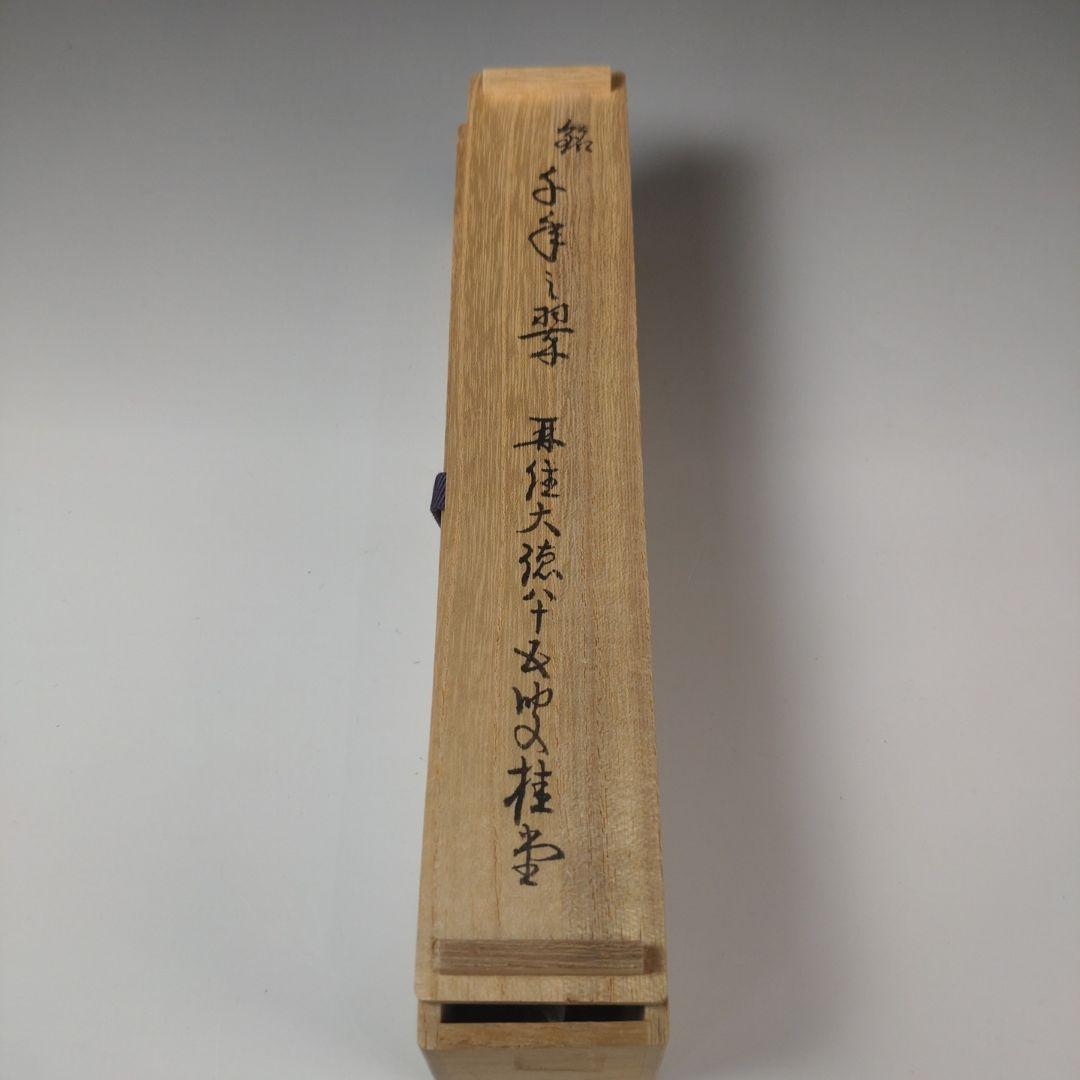 銘 千年之翠 再住大徳八十五叟桂堂